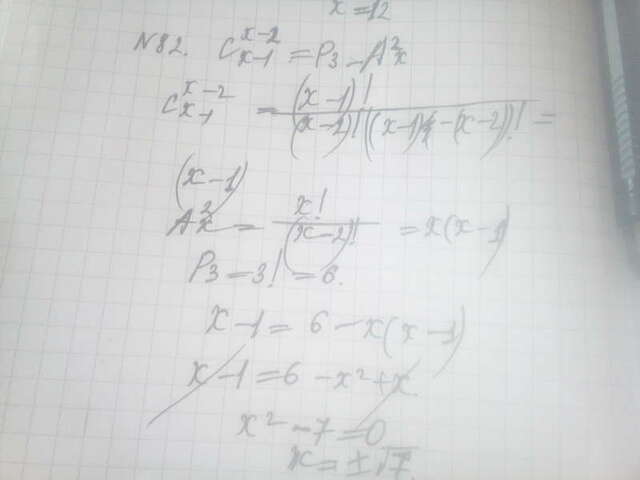 x = 12
N 82. C_{x-1}^{x-2} = P_3 - A_x^2
C_{x-1}^{x-2} = \frac{(x-1)!}{(x-2)!((x-1)-(x-2))!} =
(x-1)
A_x^2 = \frac{x!}{(x-2)!} = x(x-1)
P_3 = 3! = 6.
x - 1 = 6 - x(x-1)
x - 1 = 6 - x^2 + x.
x^2 - 7 = 0
x = ±√7